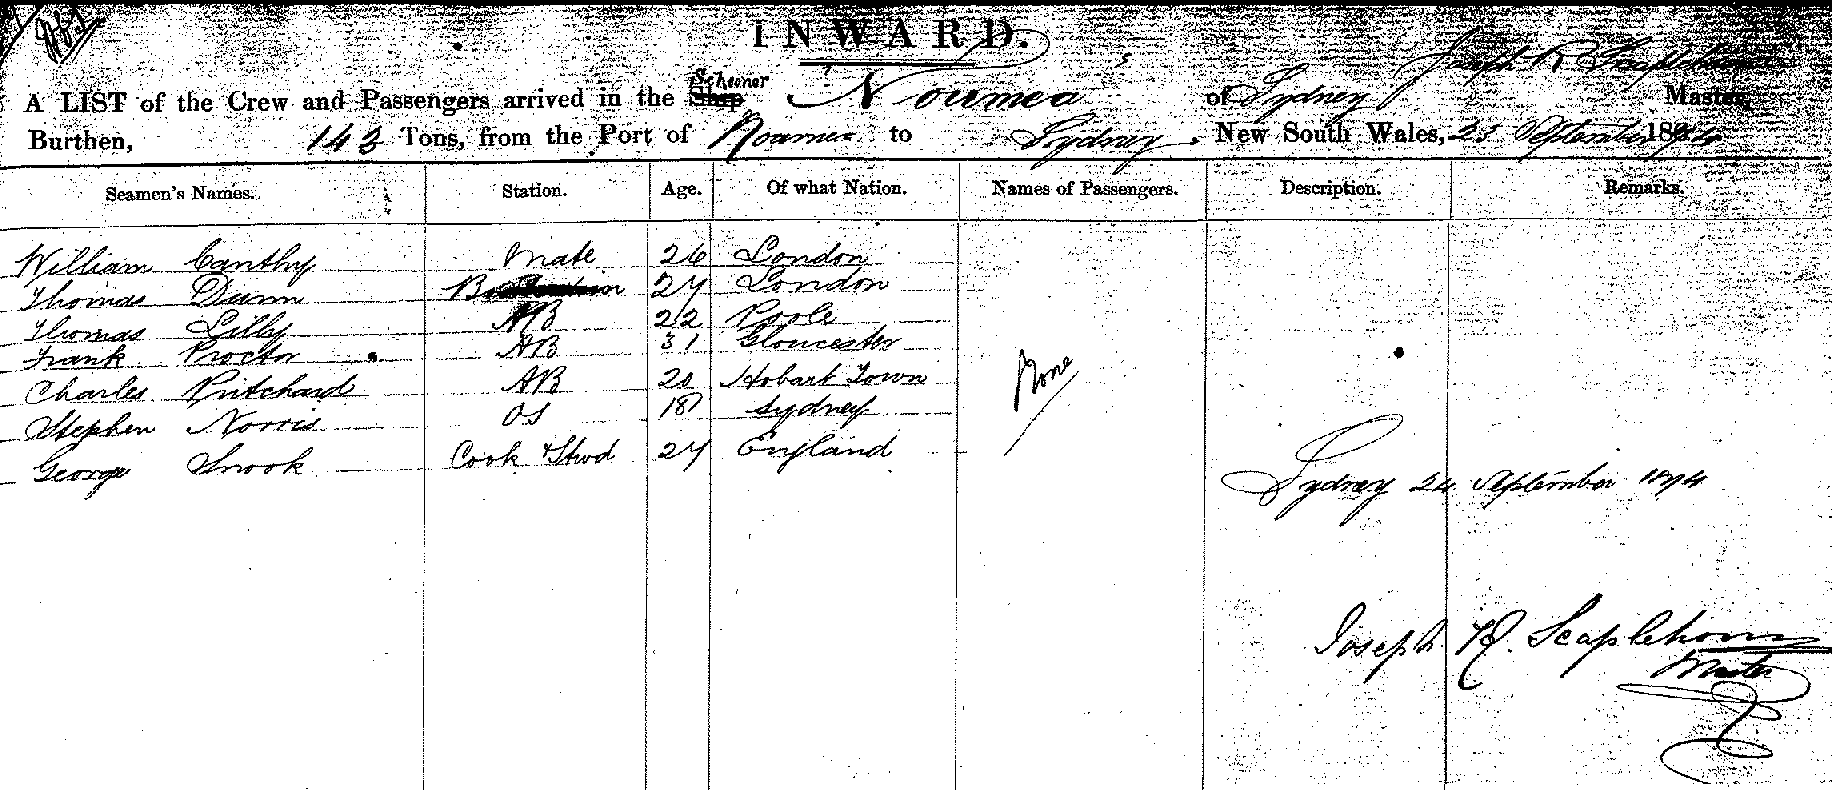 INWARD.
A LIST of the Crew and Passengers arrived in the Ship Schooner Noumea of Sydney Joseph R Scaplehorn Master,
Burthen, 143 Tons, from the Port of Noumea to Sydney, New South Wales, 23 September 1874
Seamen's Names. Station. Age. Of what Nation. Names of Passengers. Description. Remarks.
William Canthy Mate 26 London
Thomas Dunn 27 London
Thomas Lilly AB 22 Poole
Frank Proctor AB 31 Gloucester
Charles Pritchard AB 20 Hobart Town None
Stephen Norris OS 18 Sydney
George Snook Cook & Stwd 27 England
Sydney 24 September 1874
Joseph R. Scaplehorn
Master